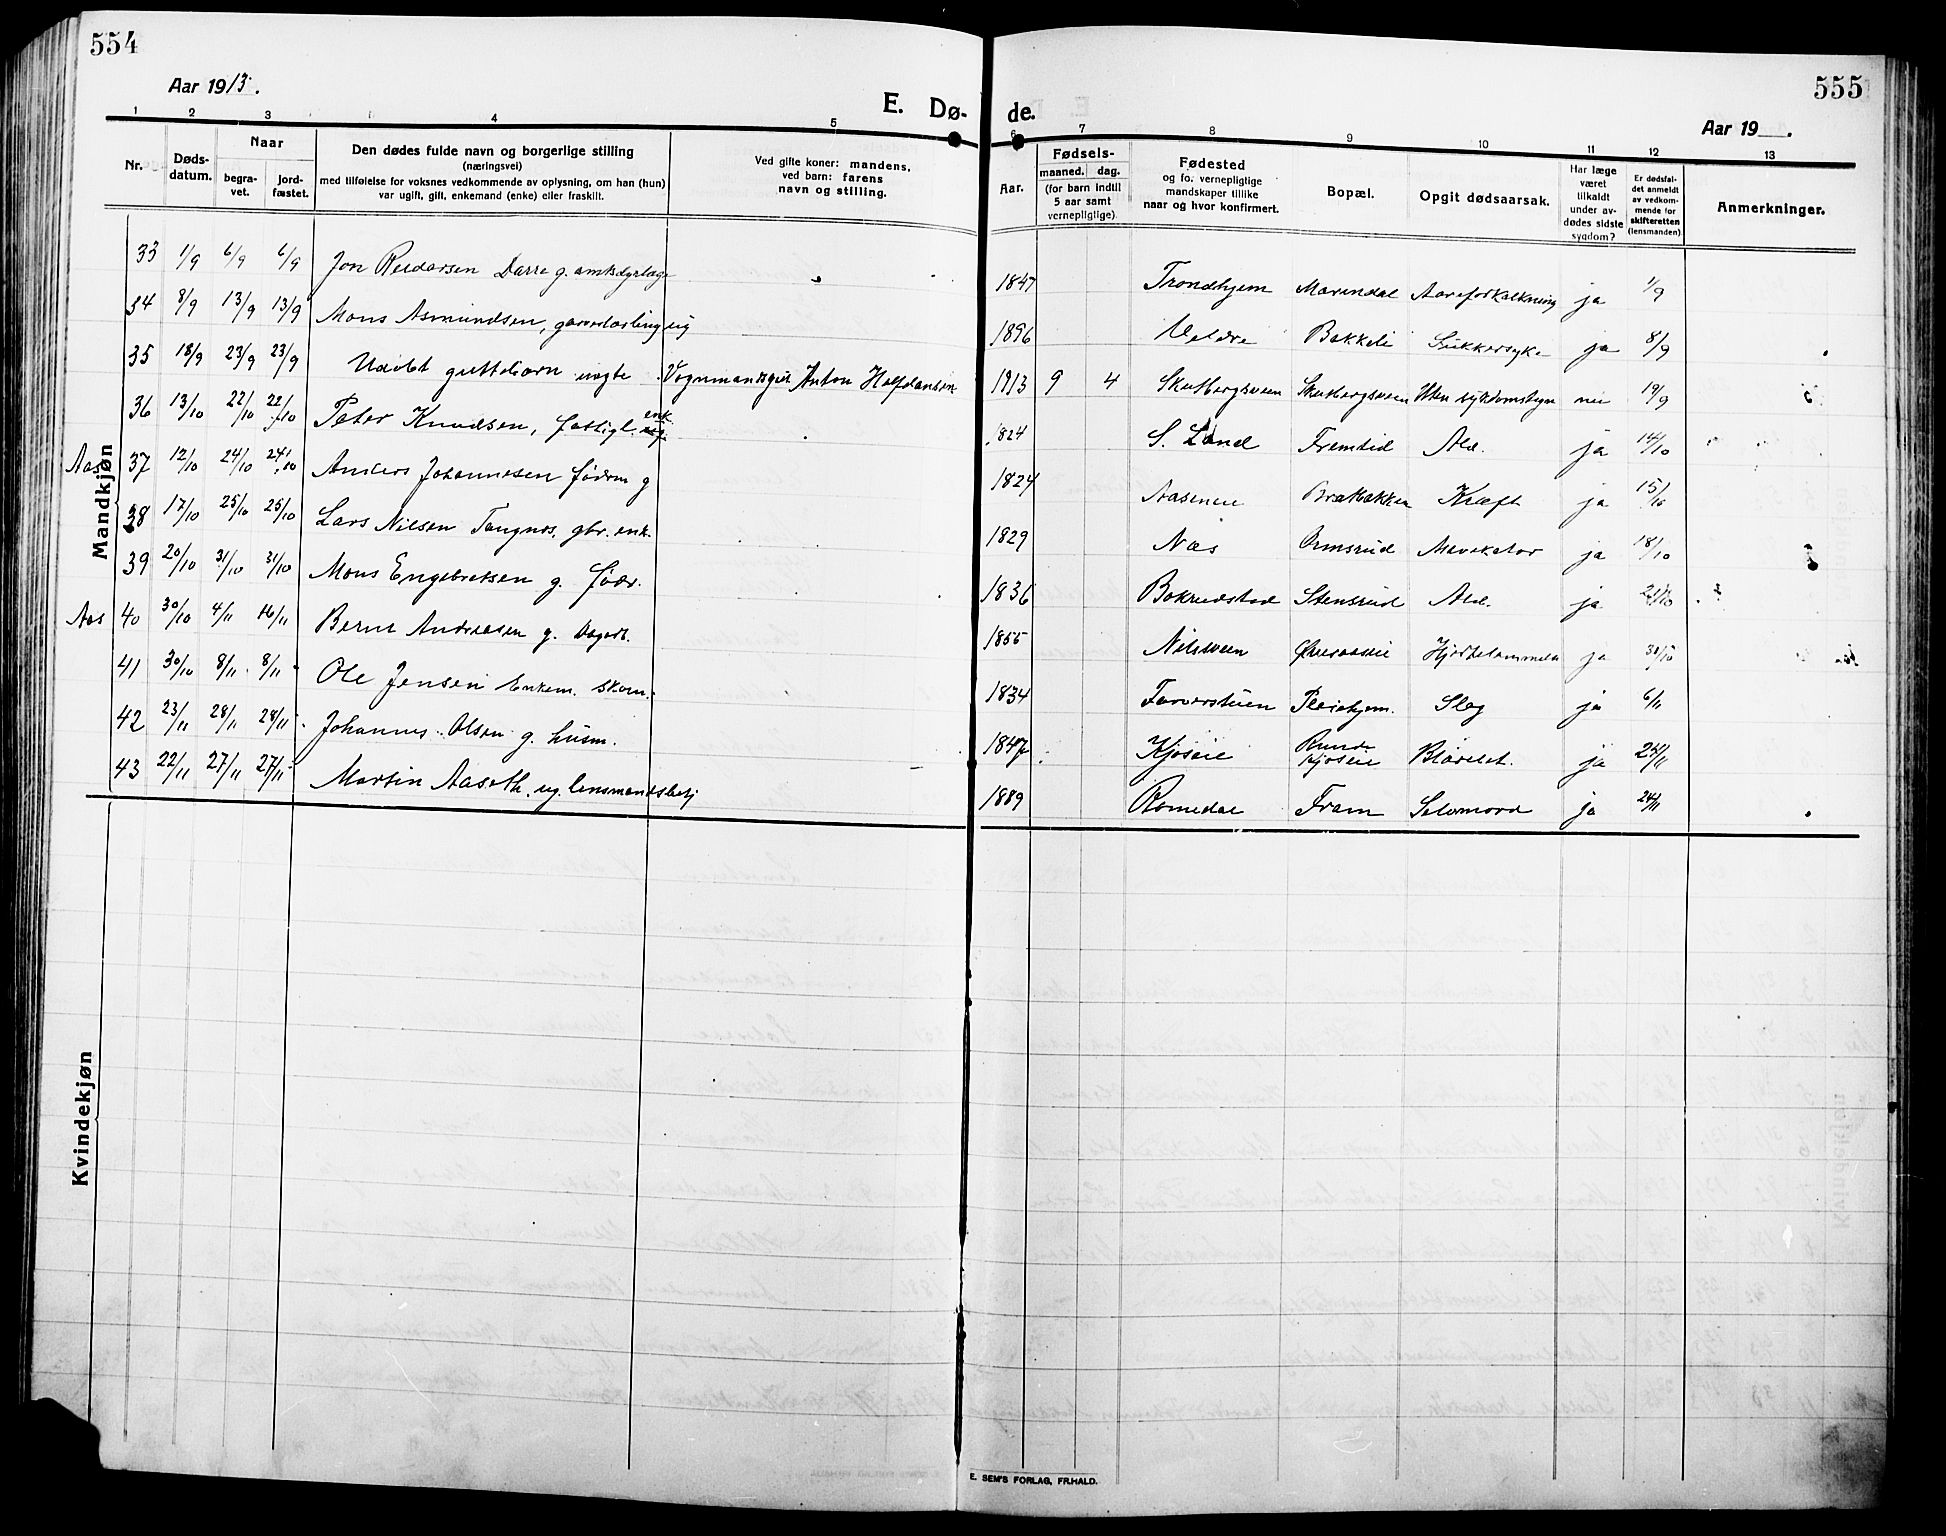 554
555
Aar 1913.
E. Dø-
de.
Aar 19 .
1 2 3 4 5 6 7 8 9 10 11 12 13
Nr. Døds-datum. Naar begra-vet. jord-fæstet. Den dødes fulde navn og borgerlige stilling (næringsvei) med tilføielse for voksnes vedkommende av oplysning, om han (hun) var ugift, gift, enkemand (enke) eller fraskilt. Ved gifte koner: mandens, ved barn: farens navn og stilling. Aar. Fødsels- maaned. dag. (for barn indtil 5 aar samt vernepligtige). Fødested og fo. vernepligtige mandskaper tillike naar og hvor konfirmert. Bopæl. Opgit dødsaarsak. Har læge været tilkaldt under av-dødes sidste sygdom? Er dødsfal-det anmeldt av vedkom-mende for skifteretten (lensmanden). Anmerkninger.
Mandkjøn
33 1/9 6/9 6/9 Jon Reidarsen Darre g. amtsdyrlæge 1847 Trondhjem Aareforkalkning ja 1/9
34 8/9 13/9 13/9 Mons Asmundsen, ug 1896 Veldre Bakkeli Sukkersyke ja 8/9
35 18/9 23/9 23/9 Udøbt guttebarn uegte Vognmandsgut Anton Halfdansen 1913 9 4 Skutbergsveen Skutbergsveen Uten sykdomstegn nei 19/9
36 13/10 22/10 22/10 Peter Knudsen, fattigl. enk 1824 S. Land Fremtid Ald. ja 14/10
Aas 37 12/10 24/10 24/10 Anders Johannesenføderm g 1824 Aasenei Brattbakken Kræft ja 15/10
38 17/10 25/10 25/10 Lars Nilsen Tangnes, gbr. enk. 1829 Næs Ormsrud Mavekatar ja 18/10
39 20/10 31/10 31/10 Mons Engebretsen g. føder. 1836 Bakrudstad Stensrud Ald. ja
Aas 40 30/10 4/11 16/11 Bernt Andreasen g. 1855 Nilsveen Hjertelammelse ja 30/10
41 30/10 8/11 8/11 Ole Jensen Enkem. skom. 1834 Farverstuen Pleiehjem. Slag ja 6/11
42 23/11 28/11 28/11 Johannes Olsen g. husm. 1847 Kjoseie Kjoseie ja 24/11
43 22/11 27/11 27/11 Martin Aaseth, ug. lensmandsbetj 1889 Romedal Fram Selvmord ja 24/11
Kvindekjøn
E. SEM'S FORLAG, FR.HALD.